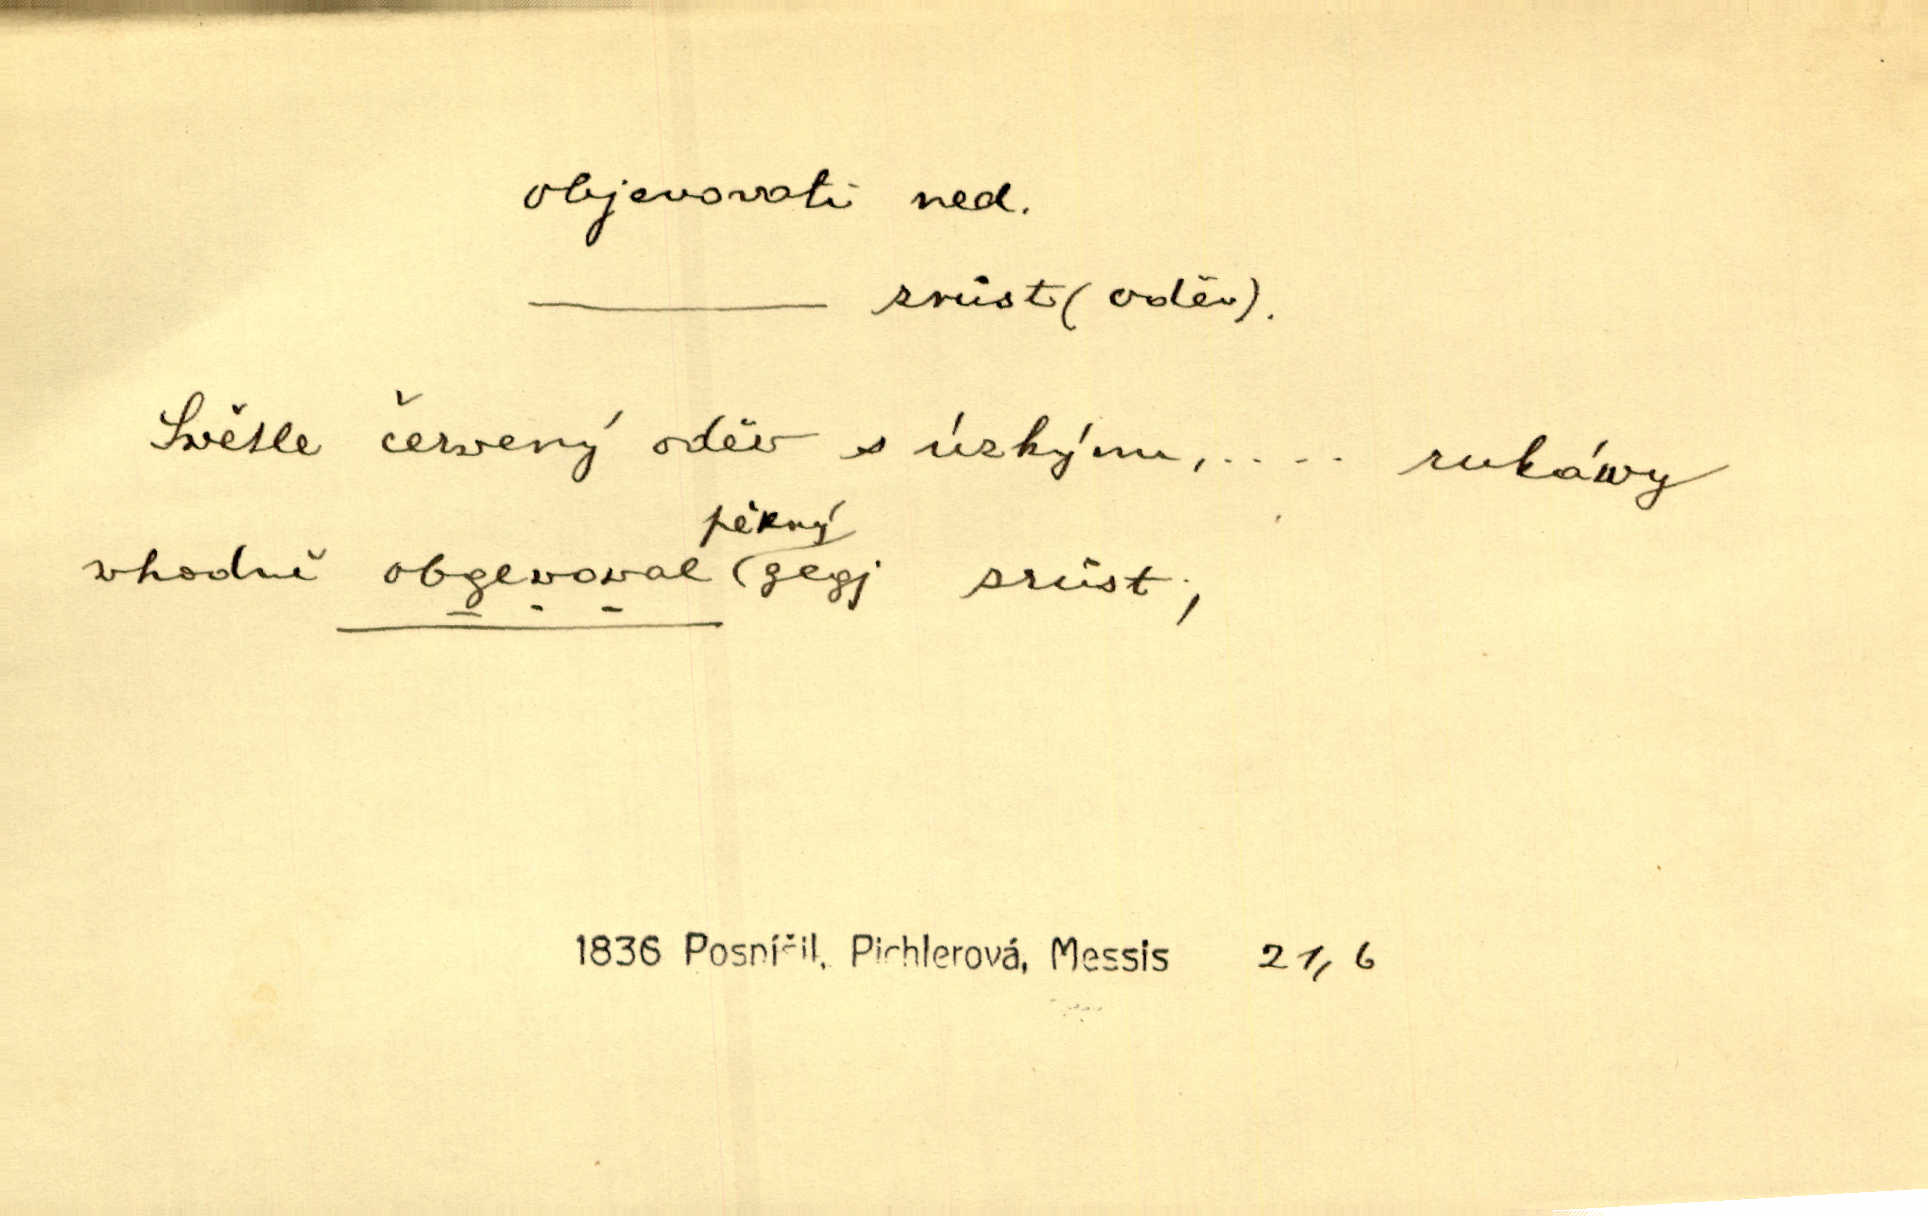 objevovati ned.
——— zrůst (oděv).
Swětle červený oděw s úzkými, .... rukáwy
whodně obgewowal (pěkný gegj zrůst;
1836 Posníčil, Pichlerová, Messis 21, 6